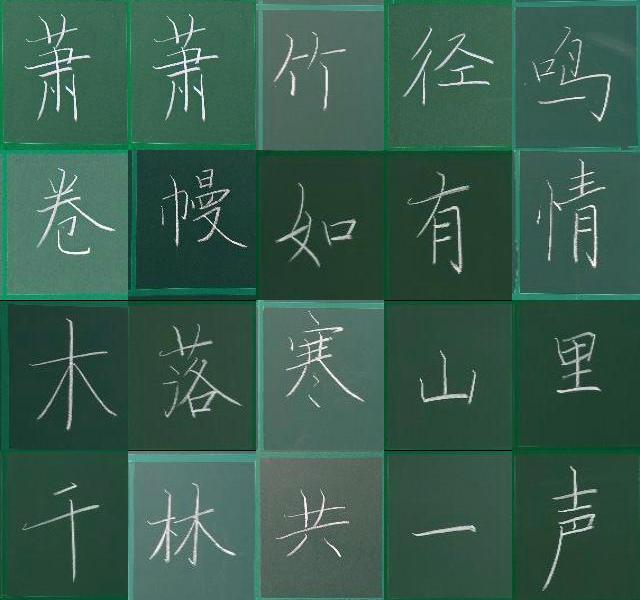 萧萧竹径鸣
卷幔如有情
木落寒山里
千林共一声